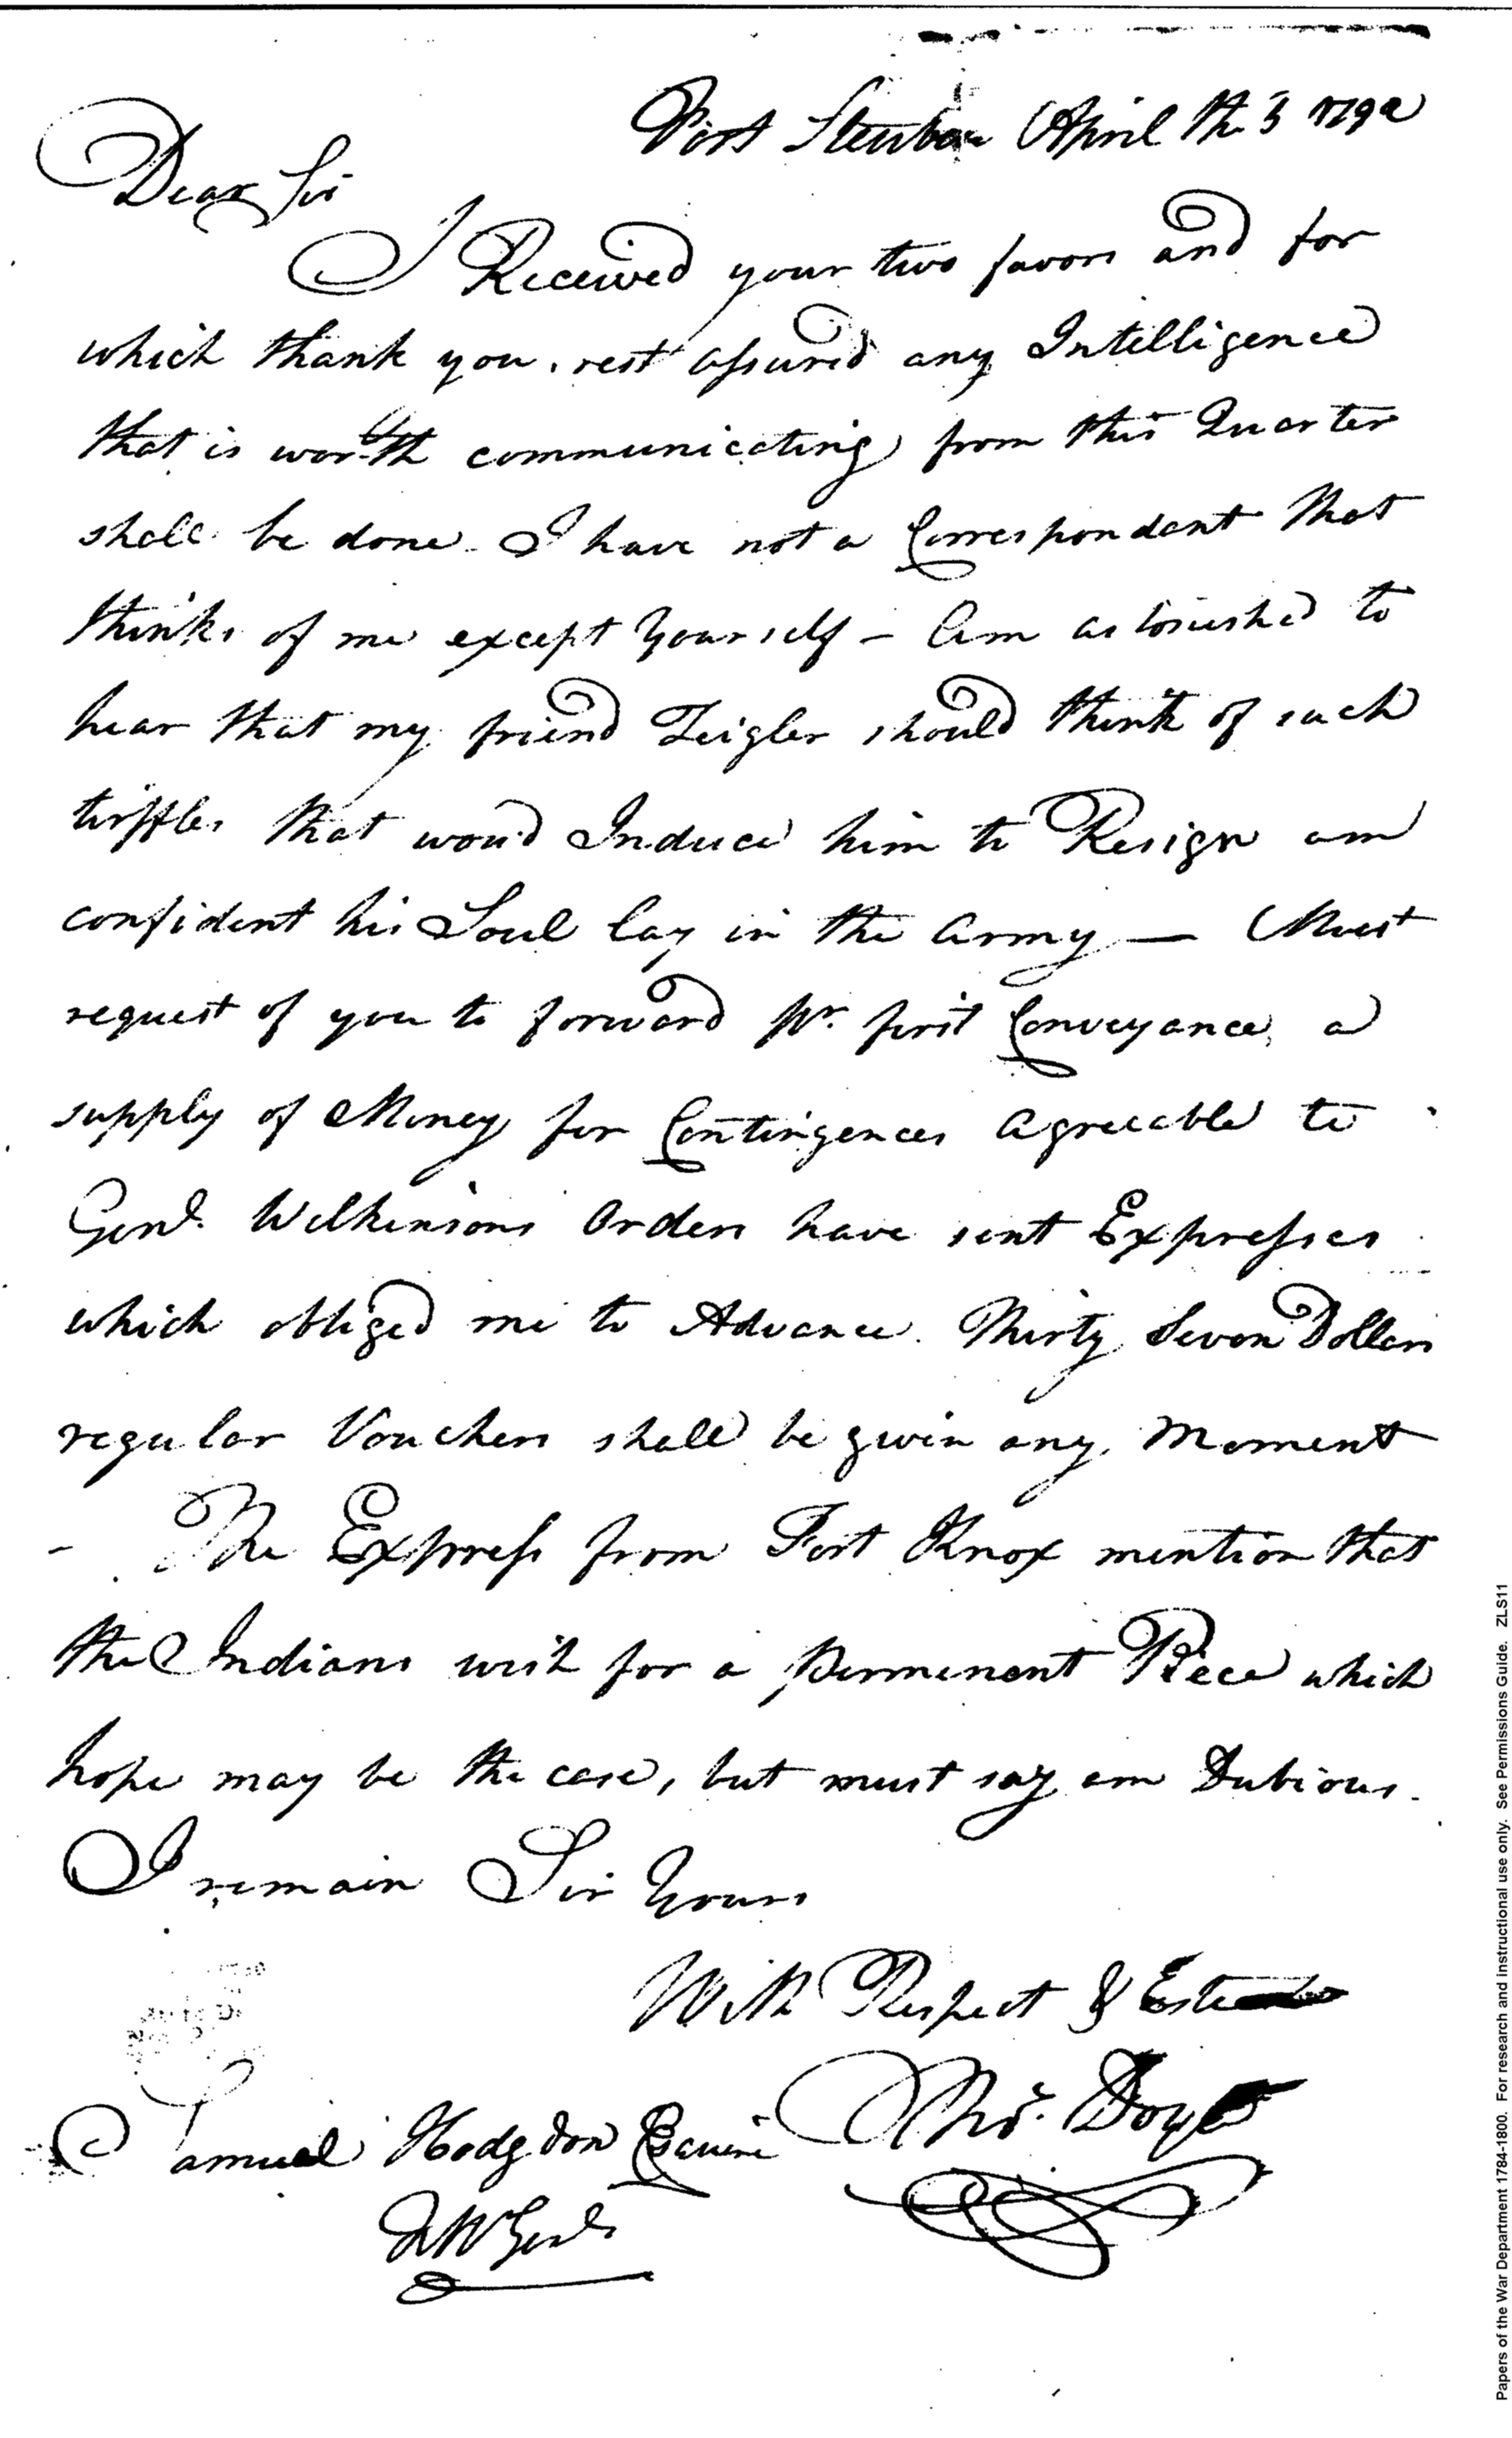 Fort Steuben April the 3 1792
Dear Sir
I Received your two favors and for
which thank you, rest assured any Intelligence
that is worth communicating from this Quarter
shall be done. I have not a Correspondent that
thinks of me except Yourself – Am astonished to
hear that my friend Zeigler should think of such
triffles that woud Induce him to Resign am
confident his Soul lay in the Army — Must
request of you to forward pr. first Conveyance, a
supply of Money for Contingences agreeable to
Genl. Wilkinsons Orders have sent Expresses
which obliged me to Advance. Thirty Seven Dollars
regular Vouchers shall be given any Moment
- The Express from Fort Knox mention that
the Indians wish for a permenent Piece which
hope may be the case, but must say am Dubious.
I remain Sir Yours
With Respect & Esteem
Thos. Doyle
Samuel Hodgdon Esquire
QMGenl.
Papers of the War Department 1784-1800. For research and instructional use only. See Permissions Guide. ZLS11